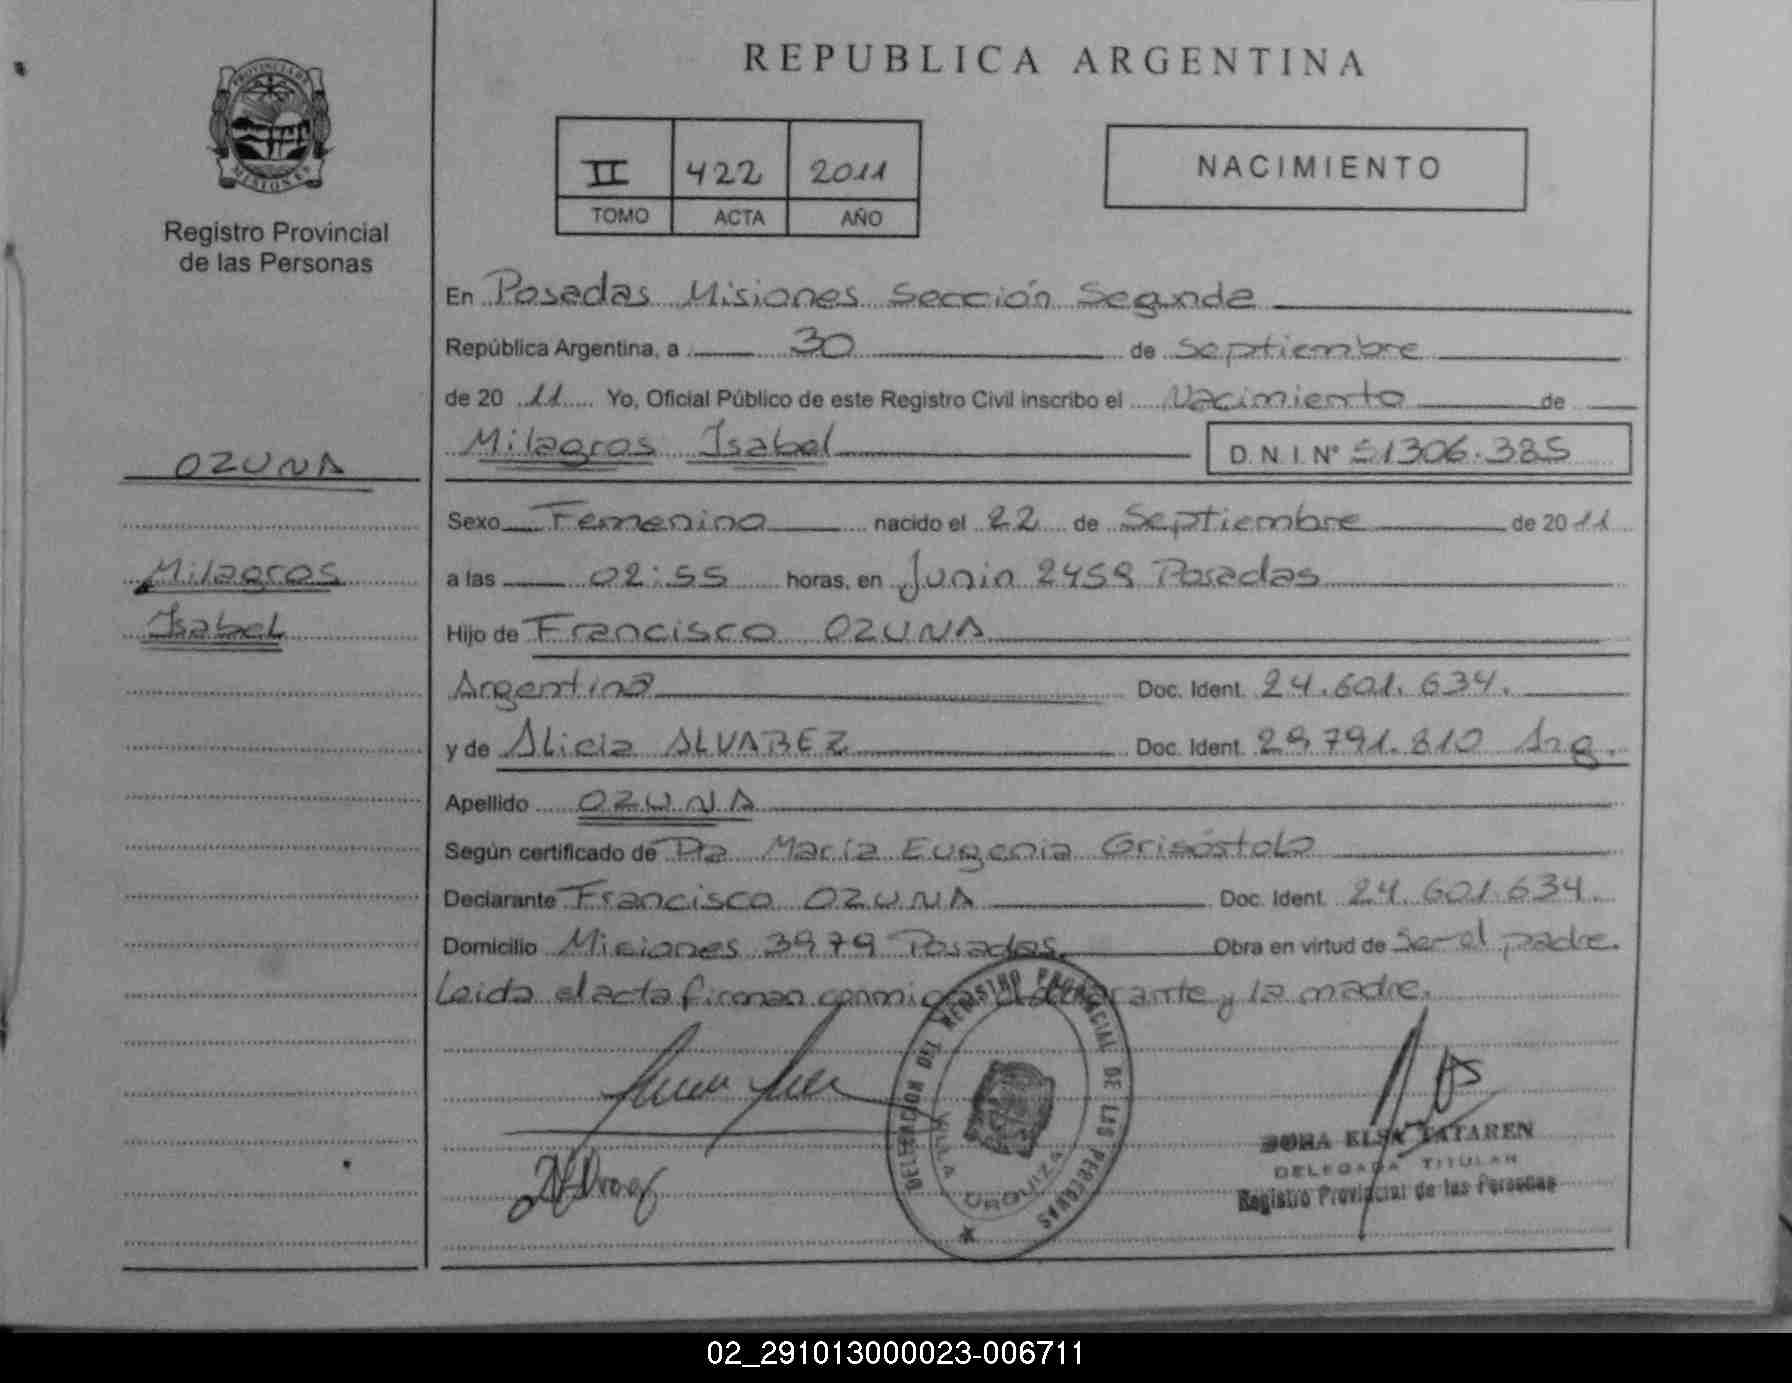 REPUBLICA ARGENTINA
PROVINCIA DE MISIONES
Registro Provincial
de las Personas
II 422 2011
TOMO ACTA AÑO
NACIMIENTO
En Posadas Misiones Sección Segunda
República Argentina, a 30 de Septiembre
de 20 11 Yo, Oficial Público de este Registro Civil inscribo el Nacimiento de
OZUNA
Milagros Isabel
D.N.I. Nº 51306.385
Sexo Femenino nacido el 22 de Septiembre de 20 11
Milagros
Isabel
a las 02:55 horas, en Junin 2459 Posadas
Hijo de Francisco OZUNA
Argentina Doc. Ident. 24.601.634.
y de Alicia ALVAREZ Doc. Ident. 29.791.810 Arg.
Apellido OZUNA
Según certificado de Dra María Eugenia Grisóstolo
Declarante Francisco OZUNA Doc. Ident. 24.601.634.
Domicilio Misiones 3979 Posadas. Obra en virtud de ser el padre.
Leida el acta firman conmigo el declarante y la madre.
DELEGACION DEL REGISTRO PROVINCIAL DE LAS PERSONAS
VILLA URQUIZA
DORA ELSA TATAREN
DELEGADA TITULAR
Registro Provincial de las Personas
02_291013000023-006711